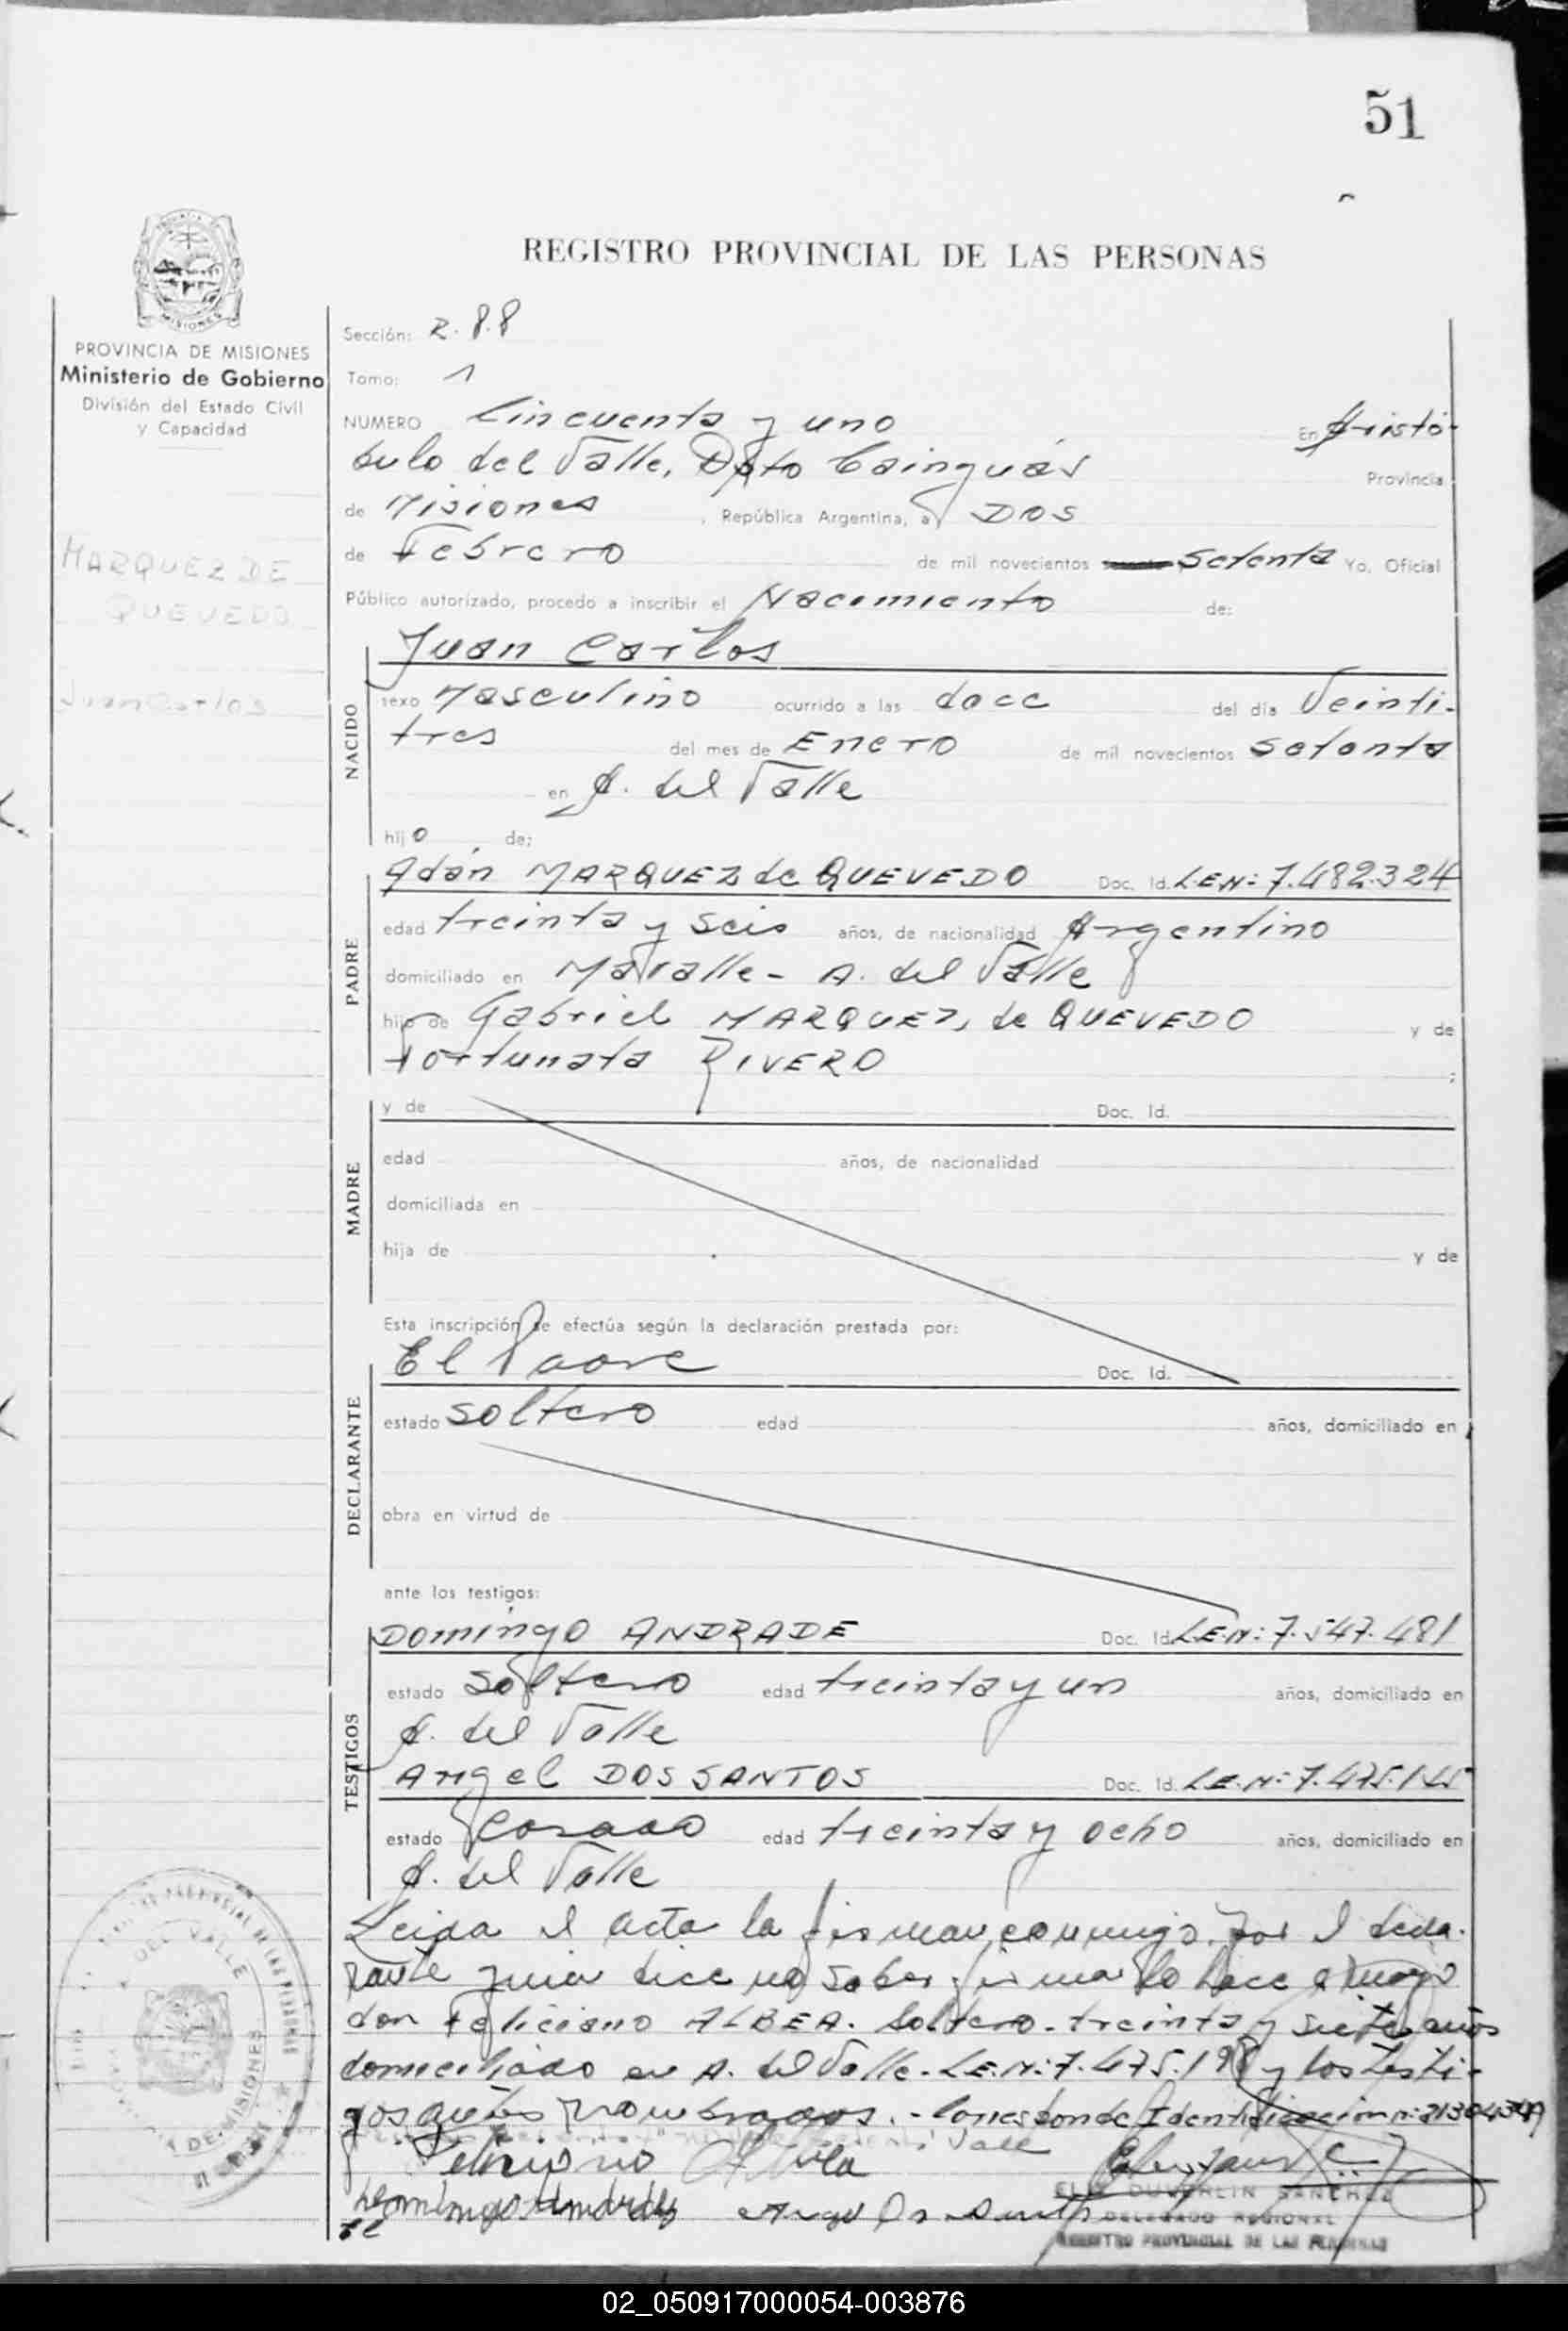 51
REGISTRO PROVINCIAL DE LAS PERSONAS
MISIONES
PROVINCIA DE MISIONES
Ministerio de Gobierno
División del Estado Civil
y Capacidad
MARQUEZ DE
QUEVEDO
Juan Carlos
Sección: R. P. P
Tomo: 1
NUMERO Cincuenta y uno En Aristó-
bulo del Valle, Dpto Cainguás Provincia
de Misiones , República Argentina, a DOS
de Febrero de mil novecientos setenta Yo, Oficial
Público autorizado, procedo a inscribir el Nacimiento de:
Juan Carlos
NACIDO
sexo Masculino ocurrido a las doce del día Veinti-
tres del mes de Enero de mil novecientos setenta
en A. del Valle
hijo de:
Adán MARQUEZ de QUEVEDO Doc. Id. L.E.N: 7.482.324
PADRE
edad treinta y seis años, de nacionalidad Argentino
domiciliado en Mavalle - A. del Valle
hijo de Gabriel MARQUEZ, de QUEVEDO y de
Fortunata RIVERO ;
MADRE
y de Doc. Id.
edad años, de nacionalidad
domiciliada en
hija de y de
Esta inscripción se efectúa según la declaración prestada por:
El Padre Doc. Id.
DECLARANTE
estado soltero edad años, domiciliado en
obra en virtud de
ante los testigos:
TESTIGOS
Domingo ANDRADE Doc. Id. L.E.N: 7.547.481
estado soltero edad treinta y un años, domiciliado en
A. del Valle
Angel DOS SANTOS Doc. Id. L.E.N: 7.475.145
estado Casado edad treinta y ocho años, domiciliado en
A. del Valle
Leida el acta la firman conmigo, por el decla-
rante quien dice no saber firmar lo hace a ruego
don Feliciano ALBEA. Soltero. treinta y siete años
domiciliado en A. del Valle. L.E.N: 7.475.198 y los testi-
gos antes nombrados. - Corresponde Identificacion n: 21304349
Vale
Domingo Andrade
DUVERLIN SANCHEZ
DELEGADO REGIONAL
REGISTRO PROVINCIAL DE LAS PERSONAS
DEL VALLE
DE MISIONES
02_050917000054-003876